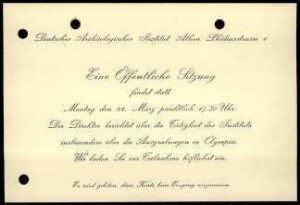 Deutsches Archäologisches Institut Athen Phidiasstrasse 1
Eine Öffentliche Sitzung
findet statt
Montag den 22. März pünktlich 17.30 Uhr.
Der Direktor berichtet über die Tätigkeit des Instituts
insbesondere über die Ausgrabungen in Olympia.
Wir laden Sie zur Teilnahme höflichst ein.
Es wird gebeten, diese Karte beim Eingang vorzuweisen.